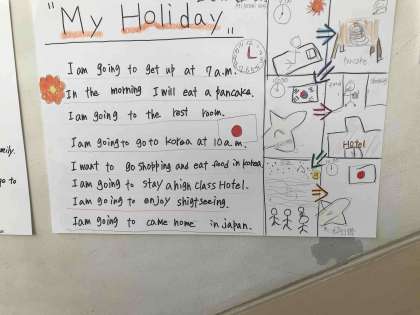 "My Holiday"
I am going to get up at 7 a.m.
In the morning I will eat a pancaka.
I am going to the rest room.
I am going to go to korea at 10 a.m.
I want to go shopping and eat food in korea.
I am going to stay a high class Hotel.
I am going to enjoy shigtseeing.
I am going to came home in japan.
pancake
HOTEL
mily.
go to